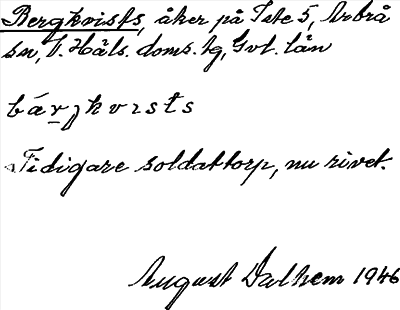 Bergkvists, åker på Tete 5, Arbrå
sn, V. Häls. doms. tg, Gvl. län
bárjkvists
Tidigare soldattorp, nu rivet.
August Dalhem 1946